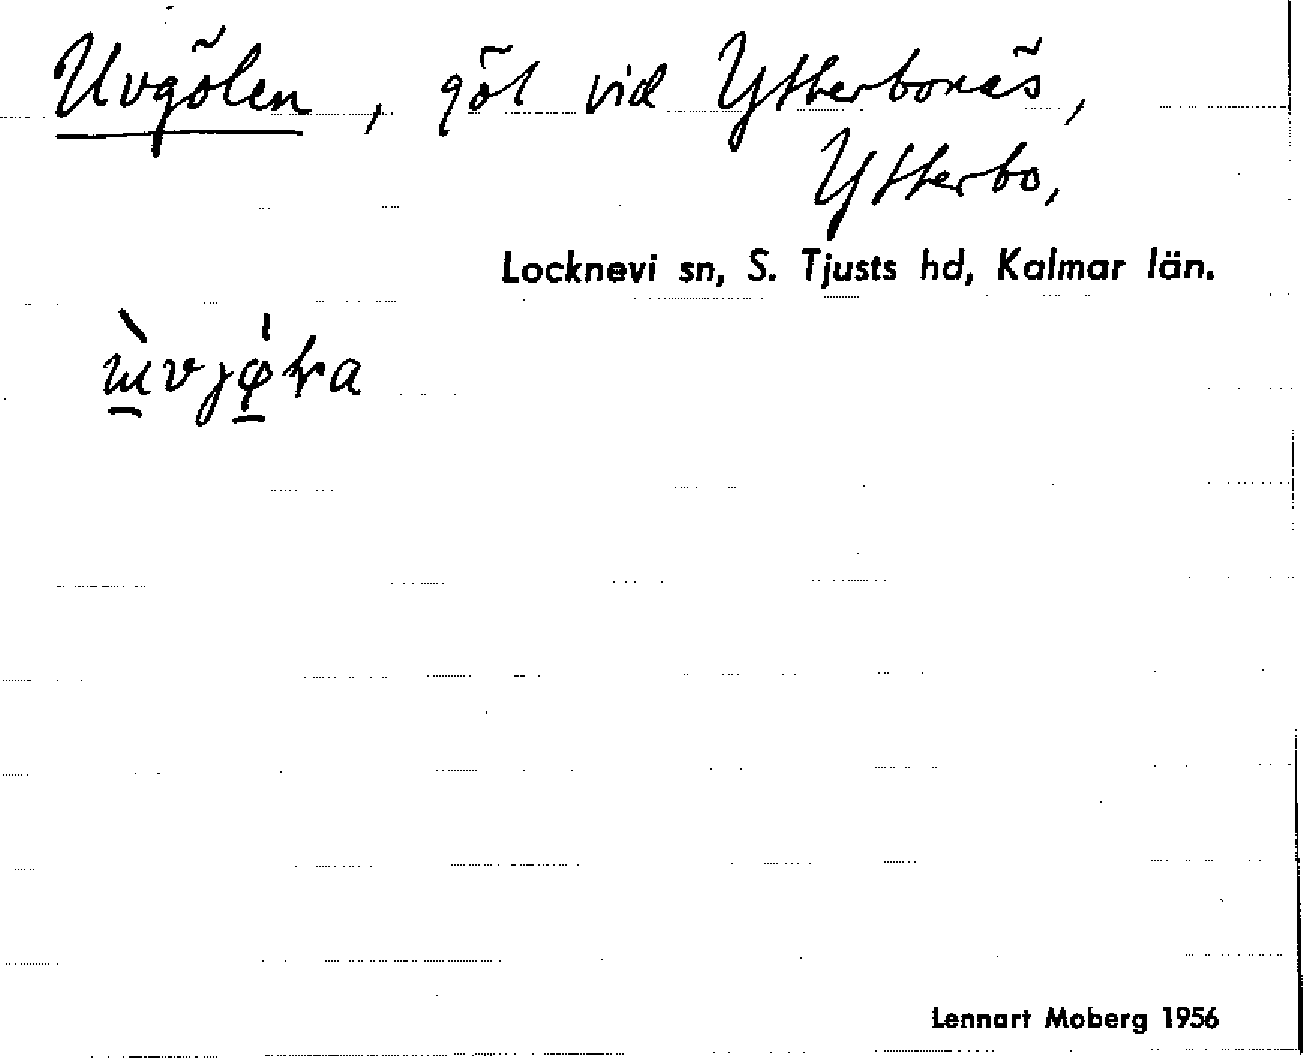 Uvgölen, göl vid Ytterbonäs,
Ytterbo,
Locknevi sn, S. Tjusts hd, Kalmar län.
Lennart Moberg 1956